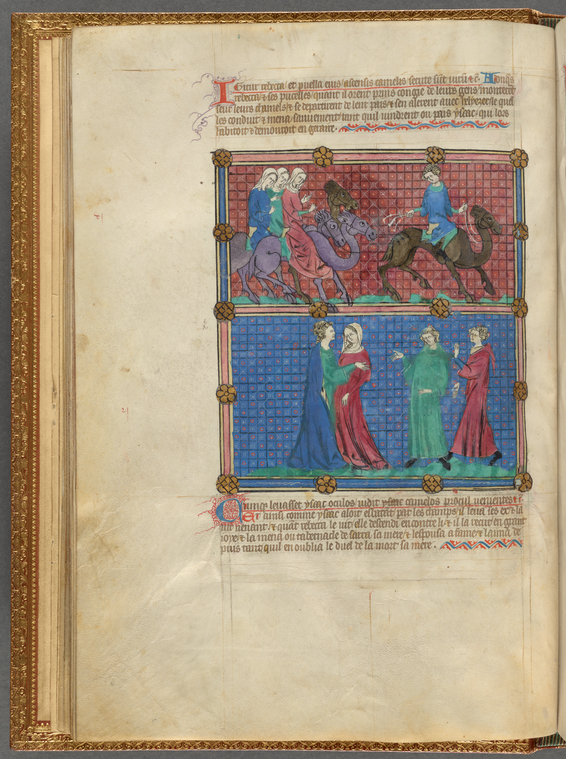 Igitur rebeca et puelle eius ascensis camelis secute sunt uirum
rebecca & ses pucelles quant il orent pris congie de leurs gens monterent
seur leurs chamels & se departirent de leur pais & sen alerent auec
les conduit & mena sauuement tant quil uindrent ou pais ysaac qui lors
habitoit & demouroit en gerare
Cumque leuasset ysaac oculos uidit camelos procul uenientes
ainsi comme ysaac aloit par les champs il leua ses
uenant & quant rebeca le uit elle descendi encontre li & il la recut en grant
ioye & la mena ou tabernacle de sarra sa mere & lespousa a fame & lama de
puis tant quil en oublia le duel de la mort sa mere